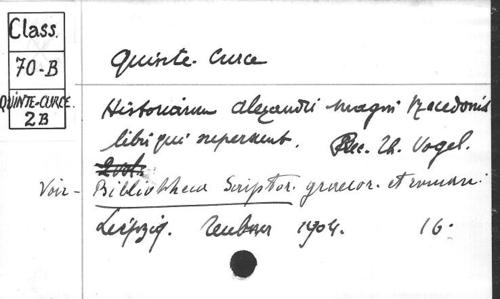 Class.
70-B
QUINTE-CURCE.
2B
Quinte-Curce
Historiarum Alexandri magni Macedonis
libri qui supersunt. Rec. Th. Vogel.
Voir - Bibliotheca Scriptor. graecor. et roman.
Leipzig. Teubner 1904. 16.